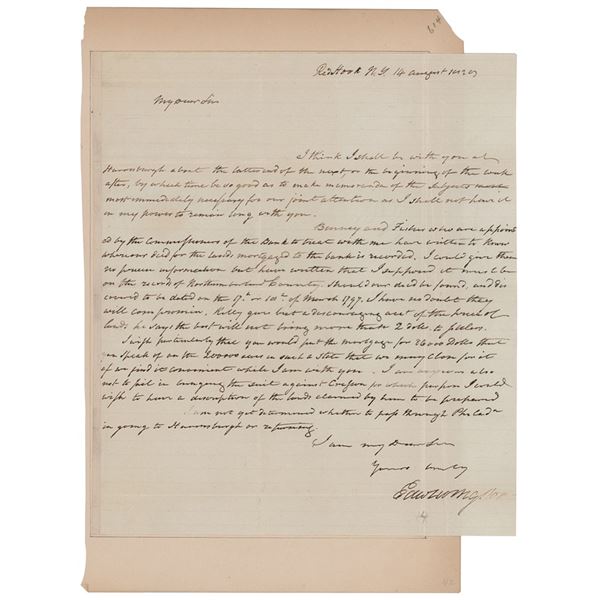 614
Red Hook N.Y. 14 august 1829
My dear Sir
I think I shall be with you at
Harrisburgh about the latter end of the next or the beginning of the week
after, by which time be so good as to make memoranda of the subjects most
most immediately necessary for our joint attention as I shall not have it
in my power to remain long with you.
Binney and Fisher who are appoint
ed by the Commissioners of the Bank to treat with me have written to know
where our deed for the lands mortgaged to the bank is recorded. I could give them
no precise information but have written that I supposed it must be
on the records of Northumberland County. Should our deed be found, and dis
covered to be dated on the 17th or 18th of March 1797, I have no doubt they
will compromise. Kelley gives but a discouraging acct of the price of
lands, he says the best will not bring more than 2 dolls. to settlers.
I wish particularly that you would put the mortgage for 26000 Dolls that
you speak of on the 20000 acres in such a state that we may close for it
if we find it convenient while I am with you. I am anxious also
not to fail in bringing the suit against for which purpose I would
wish to have a description of the lands claimed by him to be prepared
I am not yet determined whether to pass through Philada
in going to Harrisburgh or returning.
I am my Dear Sir
Yours truly
Edw Livingston